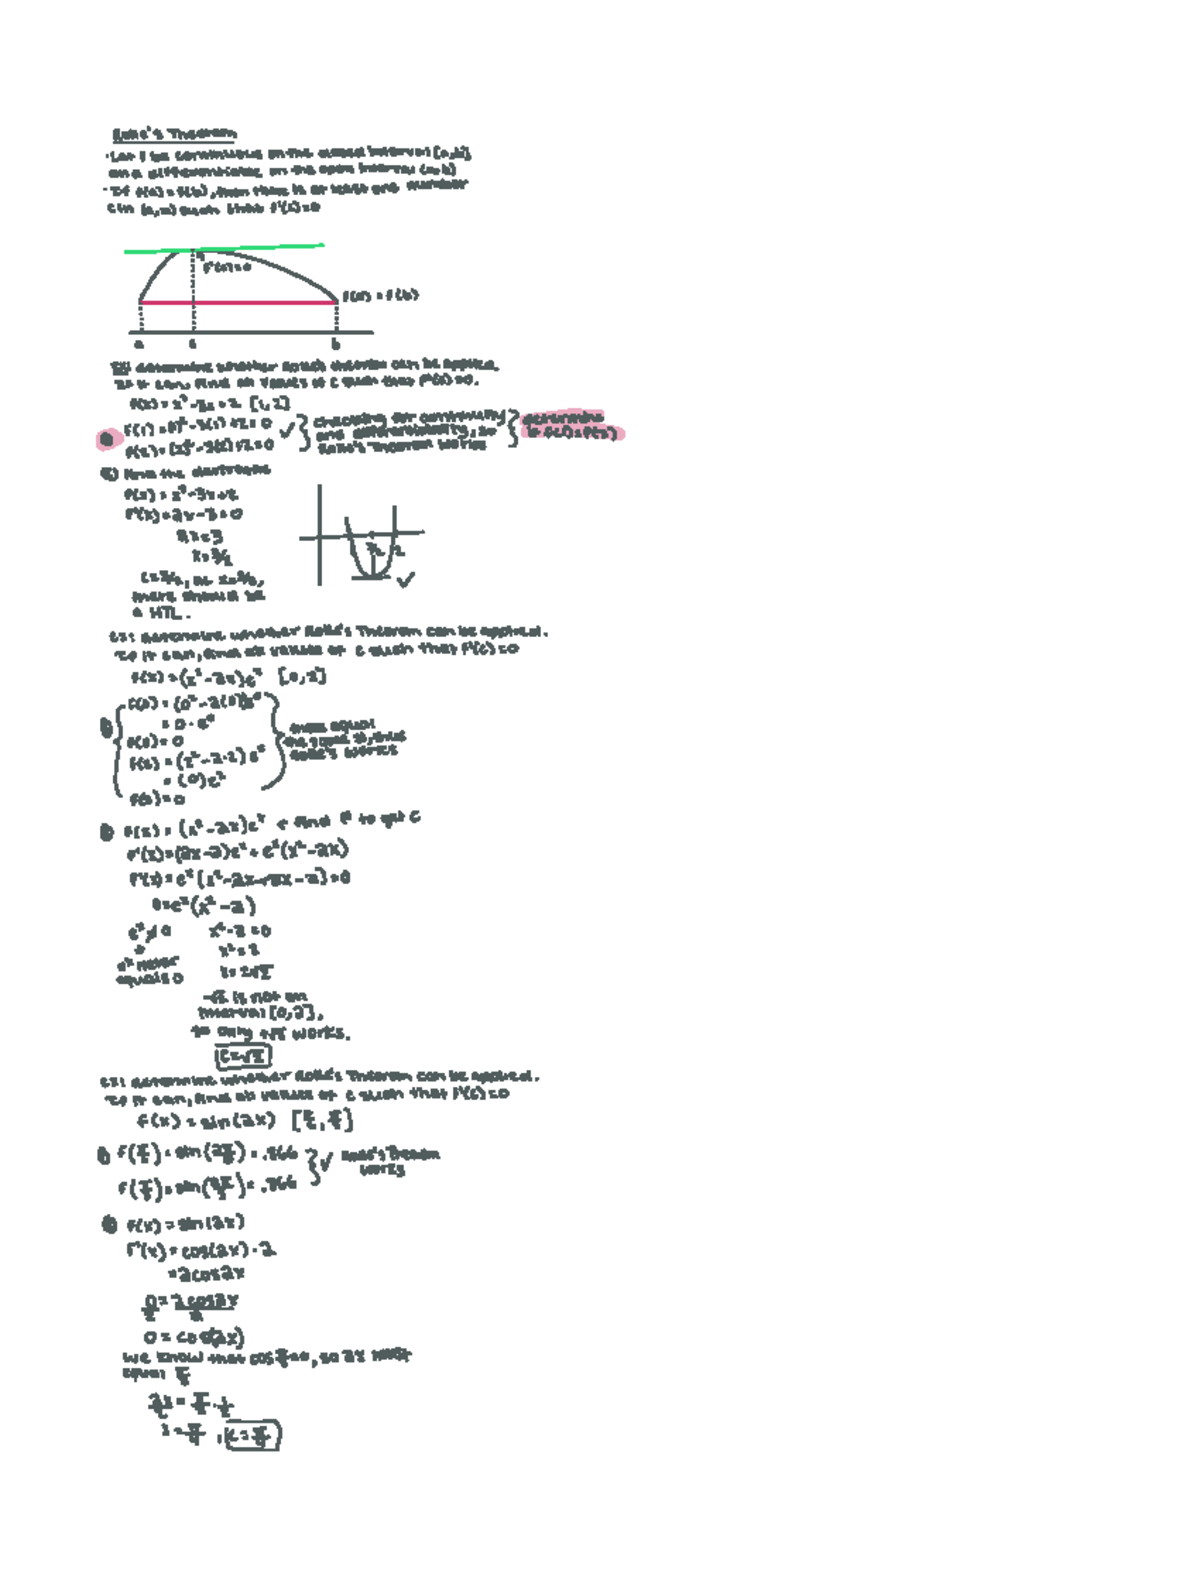 Rolle's Theorem
· Let f be continuous on the closed interval [a,b]
and differentiable on the open interval (a,b)
· If f(a) = f(b), then there is at least one number
c in (a,b) such that f'(c)=0
f'(c)=0
f(a) = f(b)
a c b
Ex: determine whether Rolle's theorem can be applied.
If it can, find all values of c such that f'(c)=0.
f(x) = x²-3x+2 [1,2]
f(1) = 1²-3(1)+2=0
f(2) = (2)²-3(2)+2=0
checking for continuity
and differentiability, so
Rolle's Theorem works
determine
if f(1)=f(2)
② find the derivative
f(x) = x²-3x+2
f'(x)=2x-3=0
2x=3
x=3/2
c=3/2, at x=3/2,
there should be
a HTL.
3/2 2
Ex: determine whether Rolle's Theorem can be applied.
If it can, find all values of c such that f'(c)=0
f(x)=(x²-2x)eˣ [0,2]
① f(0) = (0²-2(0))e⁰
= 0·e⁰
f(0)=0
f(2) = (2²-2·2)e²
= (0)e²
f(2)=0
these equal
the same #, thus
Rolle's works
② f(x) = (x²-2x)eˣ < find f' to get c
f'(x)=(2x-2)eˣ+eˣ(x²-2x)
f'(x)=eˣ(x²-2x+2x-2)=0
0=eˣ(x²-2)
eˣ≠0 x²-2=0
x²=2
eˣ never
equals 0
x=±√2
-√2 is not on
interval [0,2],
so only +√2 works.
c=√2
Ex: determine whether Rolle's Theorem can be applied.
If it can, find all values of c such that f'(c)=0
f(x)=sin(2x) [π/6, π/3]
① f(π/6)=sin(2π/6)=.866
f(π/3)=sin(2π/3)=.866
✓ Rolle's Theorem
works
② f(x)=sin(2x)
f'(x)=cos(2x)·2
=2cos2x
0/2=2cos2x/2
0=cos(2x)
we know that cos π/2=0, so 2x must
equal π/2
2x/2=π/2·1/2
x=π/4, c=π/4